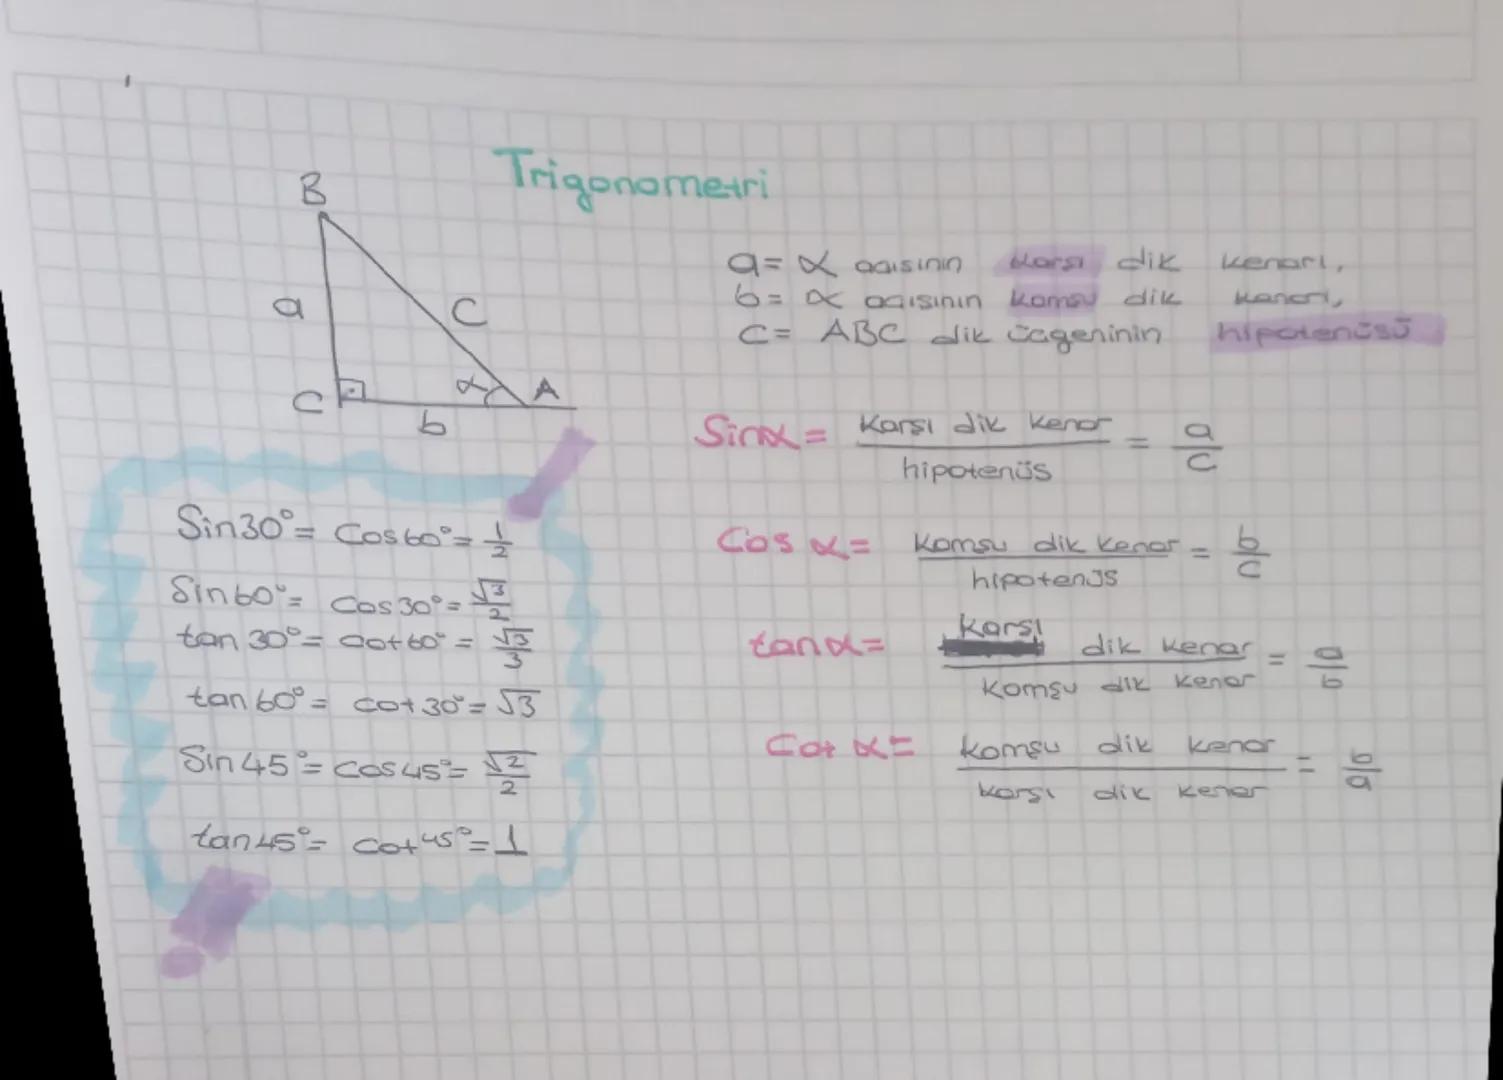 Trigonometri
B
a
C
C
α
A
b
a = α açısının karşı dik kenarı,
b = α açısının komşu dik kenarı,
c = ABC dik üçgeninin hipotenüsü
Sinα = karşı dik kenar / hipotenüs = a/c
Cos α = komşu dik kenar / hipotenüs = b/c
tanα = karşı dik kenar / komşu dik kenar = a/b
Cot α = komşu dik kenar / karşı dik kenar = b/a
Sin30° = Cos60° = 1/2
Sin60° = Cos30° = √3/2
tan 30° = cot60° = √3/3
tan 60° = cot30° = √3
Sin45° = cos45° = √2/2
tan45° = cot45° = 1